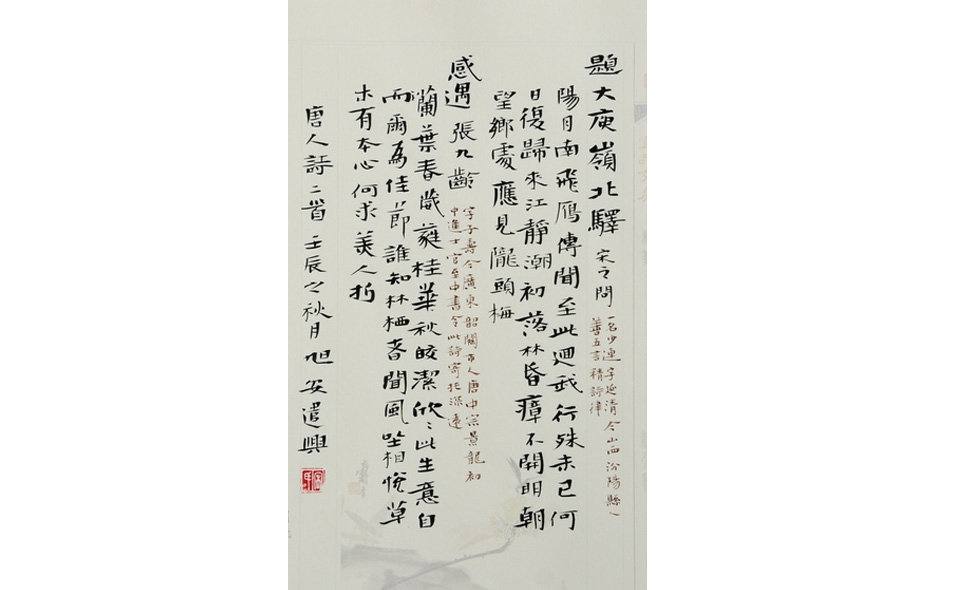 題大庾嶺北驛 宋之問
一名少連字延清今山西汾陽縣人
善五言精詩律
陽月南飛鴈傳聞至此迴我行殊未已何
日復歸來江靜潮初落林昏瘴不開明朝
望鄉處應見隴頭梅
感遇 張九齡
字子壽今廣東韶關市人唐中宗景龍初
中進士官至中書令此詩寄托深遠
蘭葉春葳蕤桂華秋皎潔欣〻此生意自
而爾為佳節誰知林栖者聞風坐相悅草
木有本心何求美人折
唐人詩二首 壬辰之秋月旭安遣興